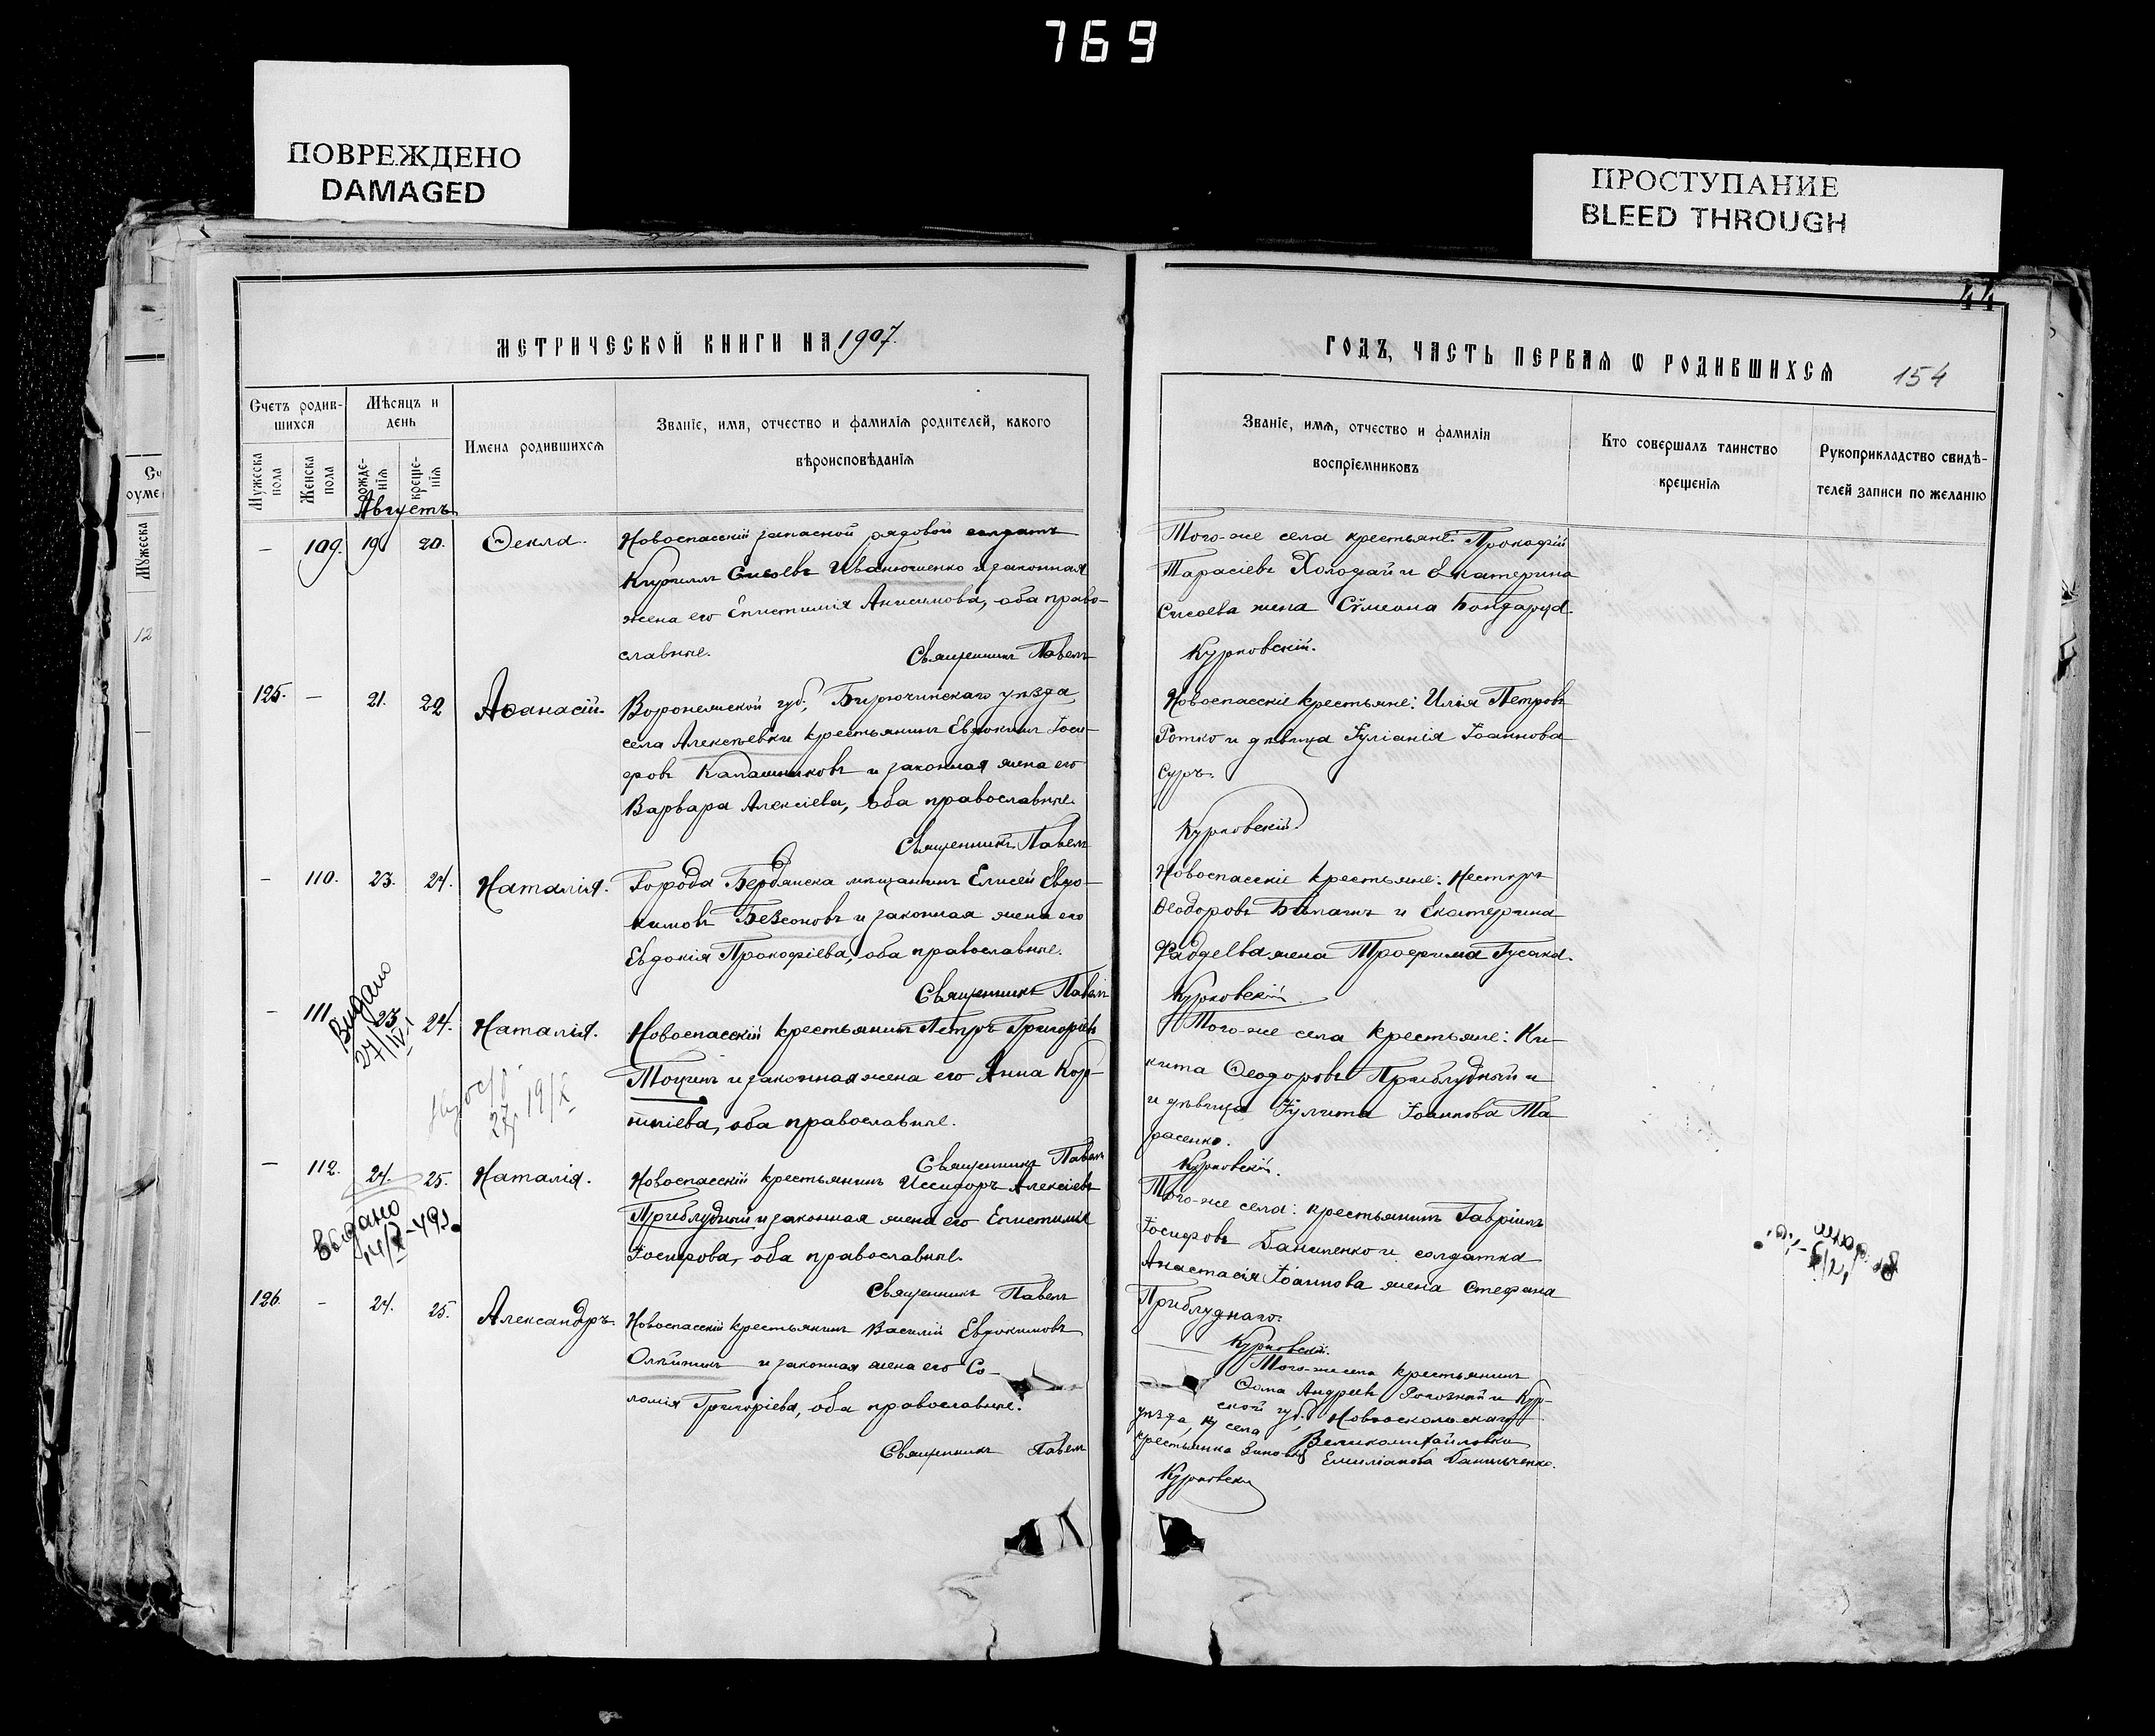 769
ПОВРЕЖДЕНО
DAMAGED
ПРОСТУПАНИЕ
BLEED THROUGH
44
МЕТРИЧЕСКОЙ КНИГИ НА 1907.
ГОДЪ, ЧАСТЬ ПЕРВАЯ Ѡ РОДИВШИХСЯ
154
Счетъ родив-
шихся
Мѣсяцъ и
день
Имена родившихся
Званіе, имя, отчество и фамилія родителей, какого
вѣроисповѣданія
Мужеска пола
Женска пола
рожде-
нія
креще-
нія
Званіе, имя, отчество и фамилія
воспріемниковъ
Кто совершалъ таинство
крещенія
Рукоприкладство свидѣ-
телей записи по желанію
Августъ
– 109. 19 20. Ѳекла. Новоспасскій запасной рядовой солдатъ
Кириллъ Сисоевъ Иванющенко и законная
жена его Епистимія Анисимова, оба право-
славные.
Священникъ Павелъ
Того-же села крестьяне: Прокофій
Тарасіевъ Холодай и Екатерина
Сисоева жена Сѵмеона Бондарца.
Курковскій.
125. – 21. 22 Аѳанасій. Воронежской губ., Бирючинскаго уѣзда
села Алексѣевки крестьянинъ Евдокимъ Іоси-
фовъ Калашниковъ и законная жена его
Варвара Алексіева, оба православные.
Священникъ Павелъ
Новоспасскіе крестьяне: Илія Петровъ
Ротко и дѣвица Іуліанія Іоаннова
Суръ.
Курковскій.
– 110. 23. 24. Наталія. Города Бердянска мѣщанинъ Елисей Евдо-
кимовъ Безсоновъ и законная жена его
Евдокія Прокофіева, оба православные.
Священникъ Павелъ
Новоспасскіе крестьяне: Несторъ
Ѳеодоровъ и Екатерина
Фаддеева жена Трофима Гусака.
Курковскій.
– 111 23 24. Наталія. Новоспасскій крестьянинъ Петръ Григоріевъ
Тоцкій и законная жена его Анна Кор-
ниліева, оба православные.
Священникъ Павелъ
Видано
27/IV
27, 19/X
Того-же села крестьяне: Ни-
кита Ѳеодоровъ Приблудный и
и дѣвица Іулита Іоаннова Та-
расенко.
Курковскій.
– 112. 24. 25. Наталія. Новоспасскій крестьянинъ Исидоръ Алексіевъ
Приблудный и законная жена его Епистимія
Іосифова, оба православные.
Священникъ Павелъ
Выдано
14/X-49г.
Того-же села: крестьянинъ Гавріилъ
Іосифовъ Даниленко и солдатка
Анастасія Іоаннова жена Стефана
Приблуднаго.
Курковскій.
126. – 24. 25. Александръ. Новоспасскій крестьянинъ Василій Евдокимовъ
Олѣйникъ и законная жена его Со-
ломія Григоріева, оба православные.
Священникъ Павелъ
Того-же села крестьянинъ
Ѳома Андреевъ и Кур-
ской губ., Новооскольскаго
уѣзда, села Великомихайловки
крестьянка Зиновія Емиліанова Данильченко.
Курковскій
Сч
оуме
Мужеска
12